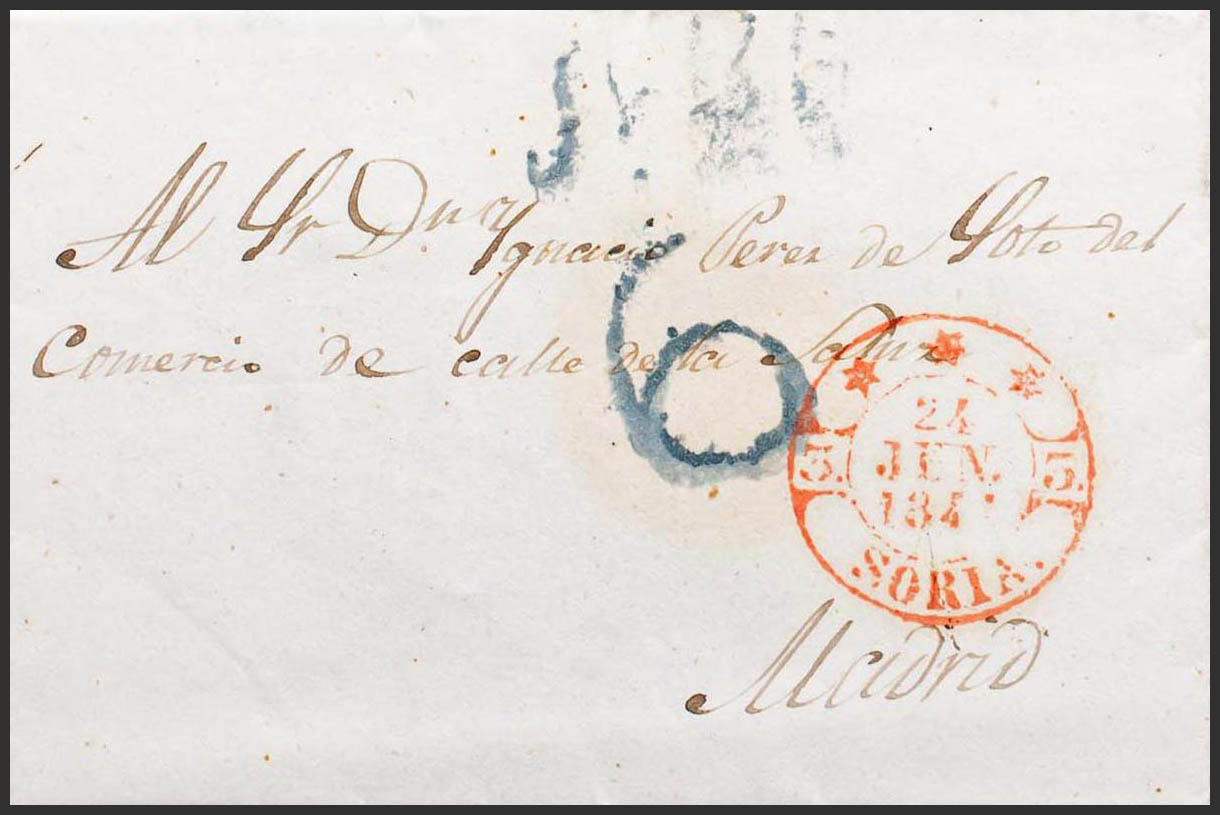 Al Sr Dn Ygnacio Perez de Soto del
Comercio de calle de la Salud
6
24
JUN.
184
3. 3.
SORIA.
Madrid